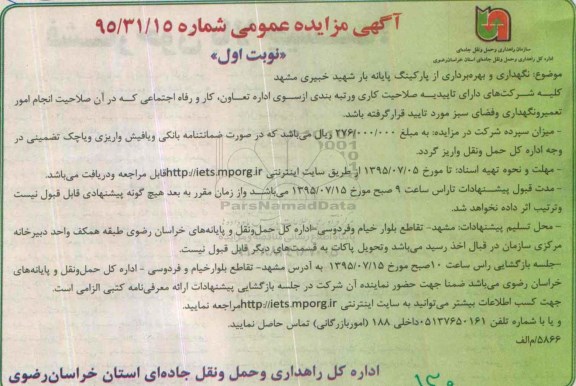 آگهی مزایده عمومی شماره ۹۵/۳۱/۱۵
«نوبت اول»
سازمان راهداری وحمل ونقل جاده‌ای
اداره کل راهداری وحمل ونقل جاده‌ای استان خراسان‌رضوی
موضوع: نگهداری و بهره‌برداری از پارکینگ پایانه بار شهید خبیری مشهد
کلیه شرکت‌های دارای تاییدیه صلاحیت کاری ورتبه بندی ازسوی اداره تعاون، کار و رفاه اجتماعی که در آن صلاحیت انجام امور
تعمیرونگهداری وفضای سبز مورد تایید قرارگرفته باشد.
- میزان سپرده شرکت در مزایده: به مبلغ ۲۷۶/۰۰۰/۰۰۰ ریال می‌باشد که در صورت ضمانتنامه بانکی ویافیش واریزی ویاچک تضمینی در
وجه اداره کل حمل ونقل واریز گردد.
- مهلت و نحوه تهیه اسناد: تا مورخ ۱۳۹۵/۰۷/۰۵ از طریق سایت اینترنتی http://iets.mporg.ir قابل مراجعه ودریافت می‌باشد.
- مدت قبول پیشنهادات تاراس ساعت ۹ صبح مورخ ۱۳۹۵/۰۷/۱۵ می‌باشد واز زمان مقرر به بعد هیچ گونه پیشنهادی قابل قبول نیست
وترتیب اثر داده نخواهد شد.
- محل تسلیم پیشنهادات: مشهد- تقاطع بلوار خیام وفردوسی-اداره کل حمل‌ونقل و پایانه‌های خراسان رضوی طبقه همکف واحد دبیرخانه
مرکزی سازمان در قبال اخذ رسید می‌باشد وتحویل پاکات به قسمت‌های دیگر قابل قبول نیست.
-جلسه بازگشایی راس ساعت ۱۰صبح مورخ ۱۳۹۵/۰۷/۱۵ به آدرس مشهد- تقاطع بلوارخیام و فردوسی - اداره کل حمل‌ونقل و پایانه‌های
خراسان رضوی می‌باشد ضمنا جهت حضور نماینده آن شرکت در جلسه بازگشایی پیشنهادات ارائه معرفی‌نامه کتبی الزامی است.
جهت کسب اطلاعات بیشتر می‌توانید به سایت اینترنتی http://iets.mporg.ir مراجعه نمایید.
و یا با شماره تلفن ۰۵۱۳۷۶۵۰۱۶۱داخلی ۱۸۸ (اموربازرگانی) تماس حاصل نمایید.
۵۸۶۶/م‌الف
اداره کل راهداری وحمل ونقل جاده‌ای استان خراسان‌رضوی